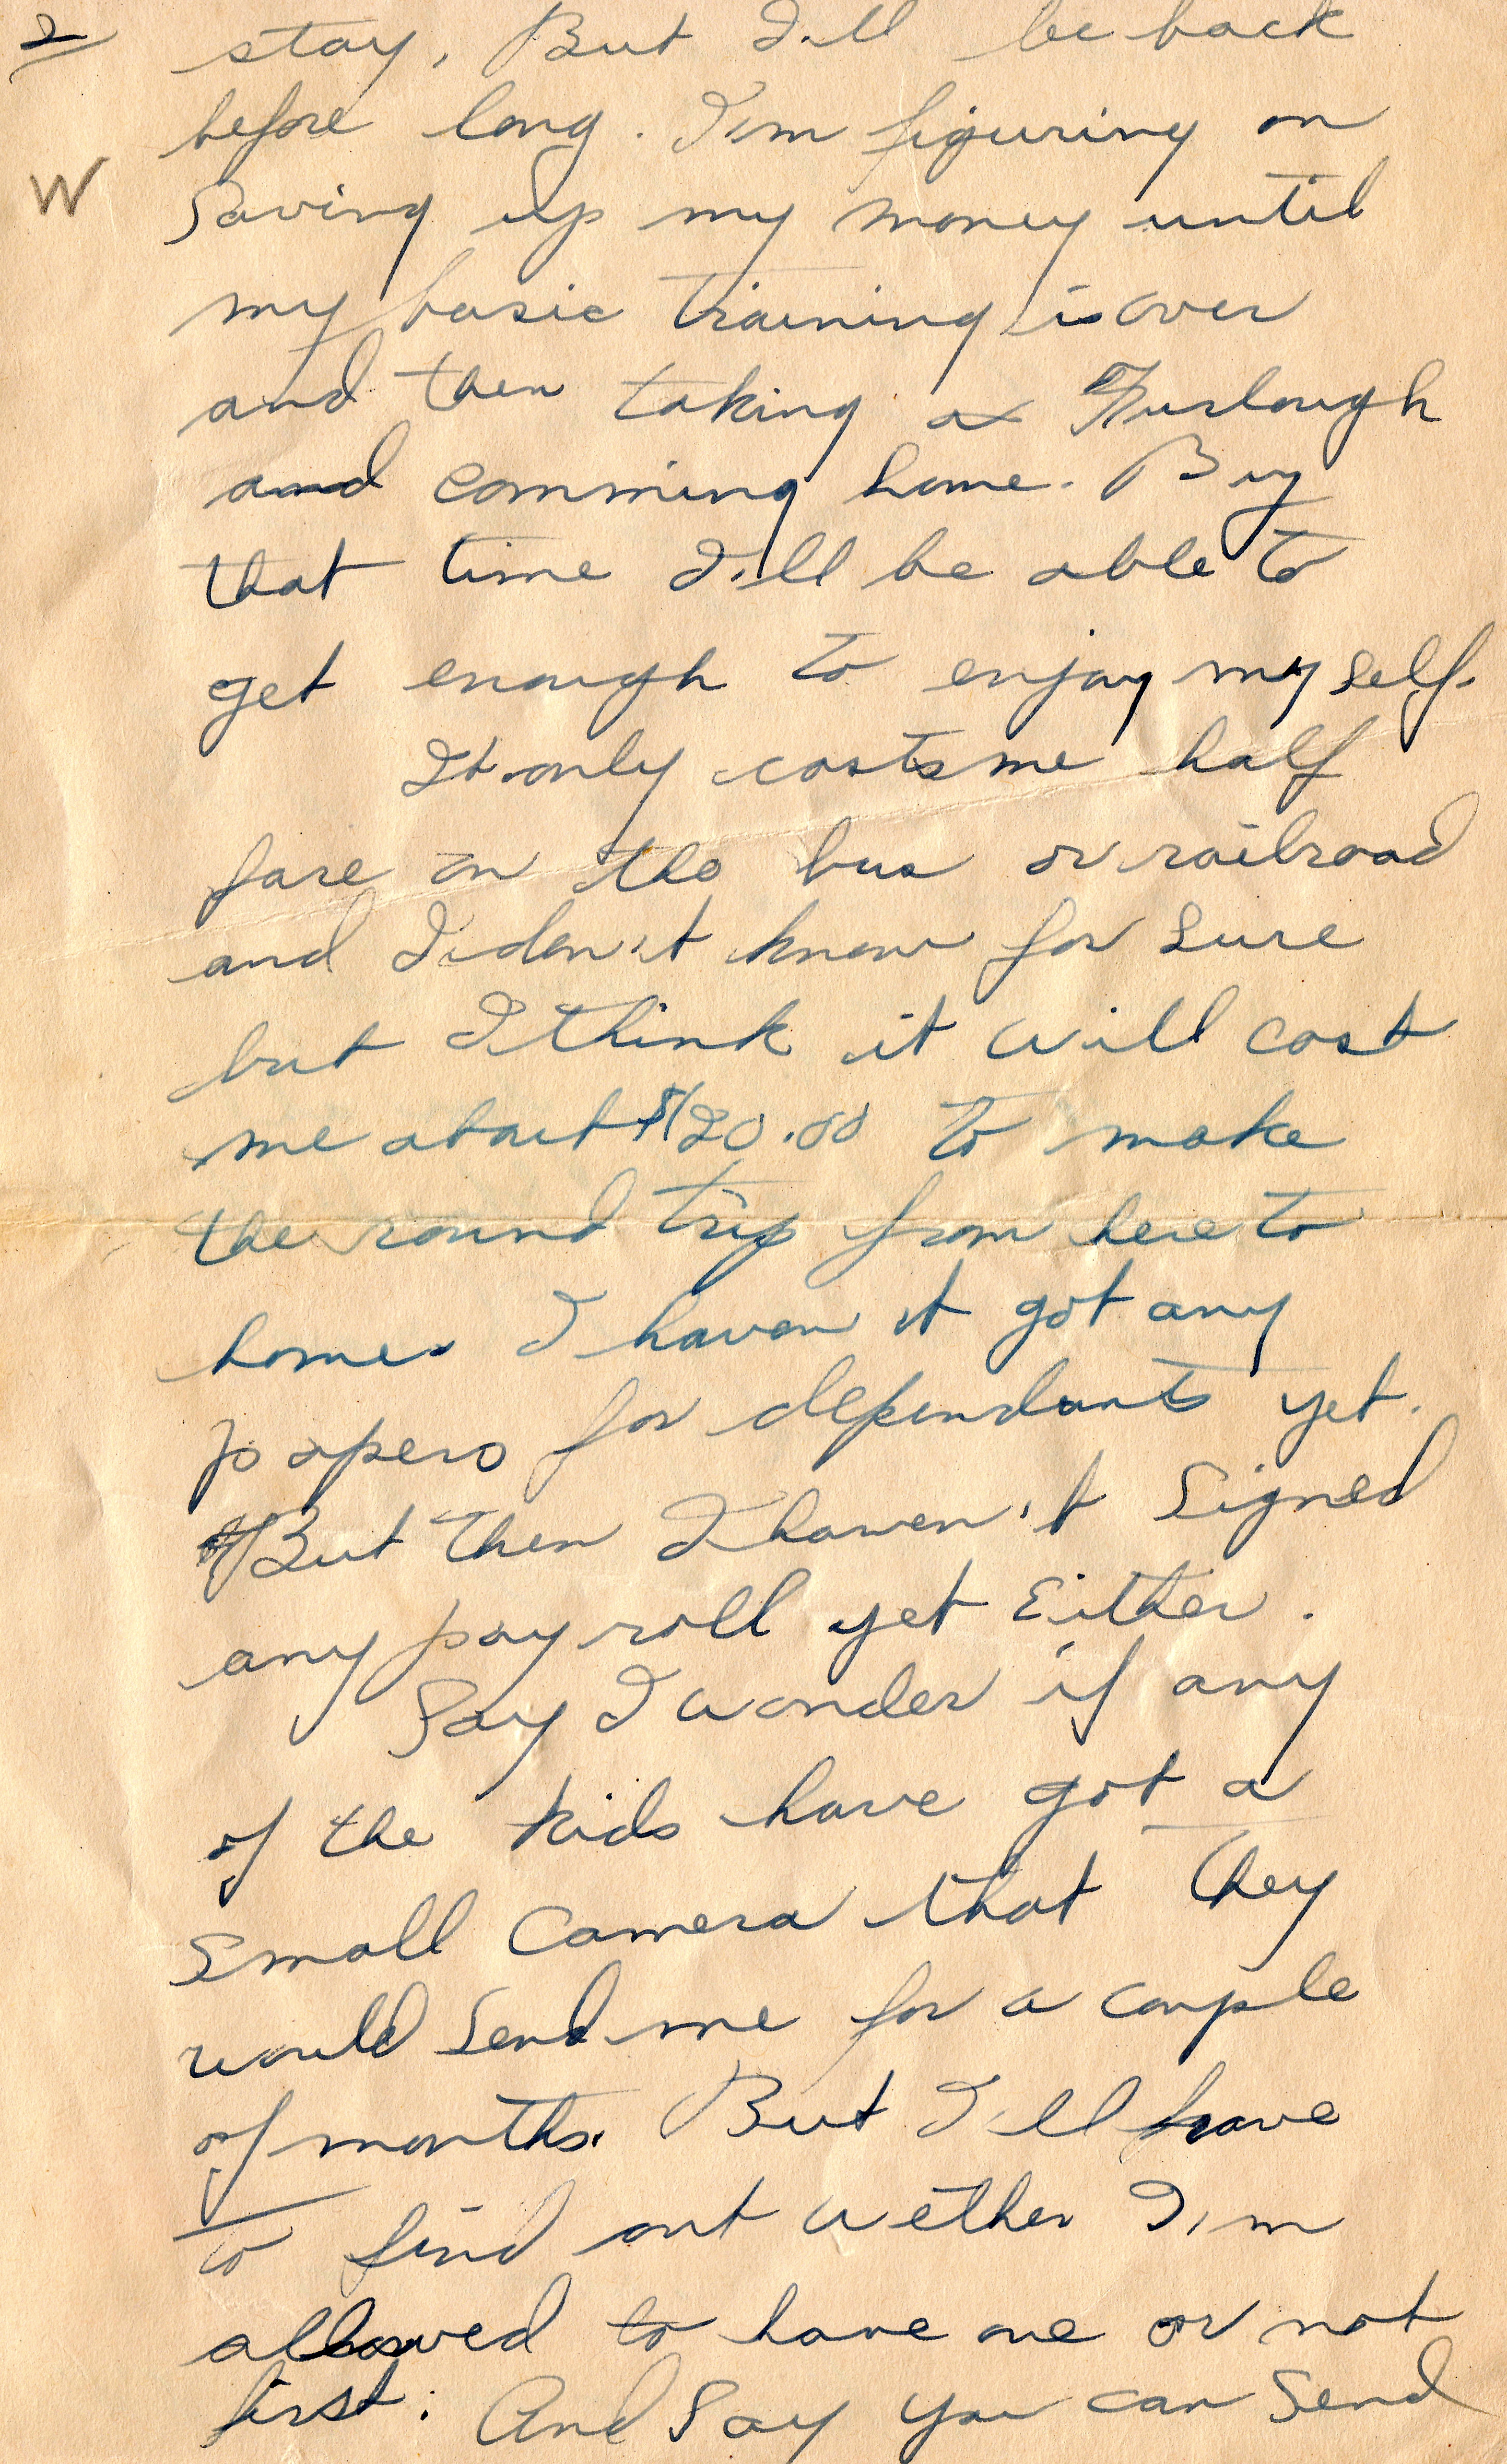 2 stay, But I'll be back
before long. I'm figuring on
W Saving up my money until
my basic training is over
and then taking a Furlough
and comming home. By
that time I'll be able to
get enough to enjoy my self.
It only costs me half
fare on the bus or railroad
and I don't know for sure
but I think it will cost
me about $20.00 to make
the round trip from here to
home. I haven't got any
papers for dependants yet.
But then I haven't signed
any pay roll yet Either.
Say I wonder if any
of the kids have got a
small Camera that they
would send me for a couple
of months. But I'll have
to find out wether I'm
allowed to have one or not
first. And Say you can Send